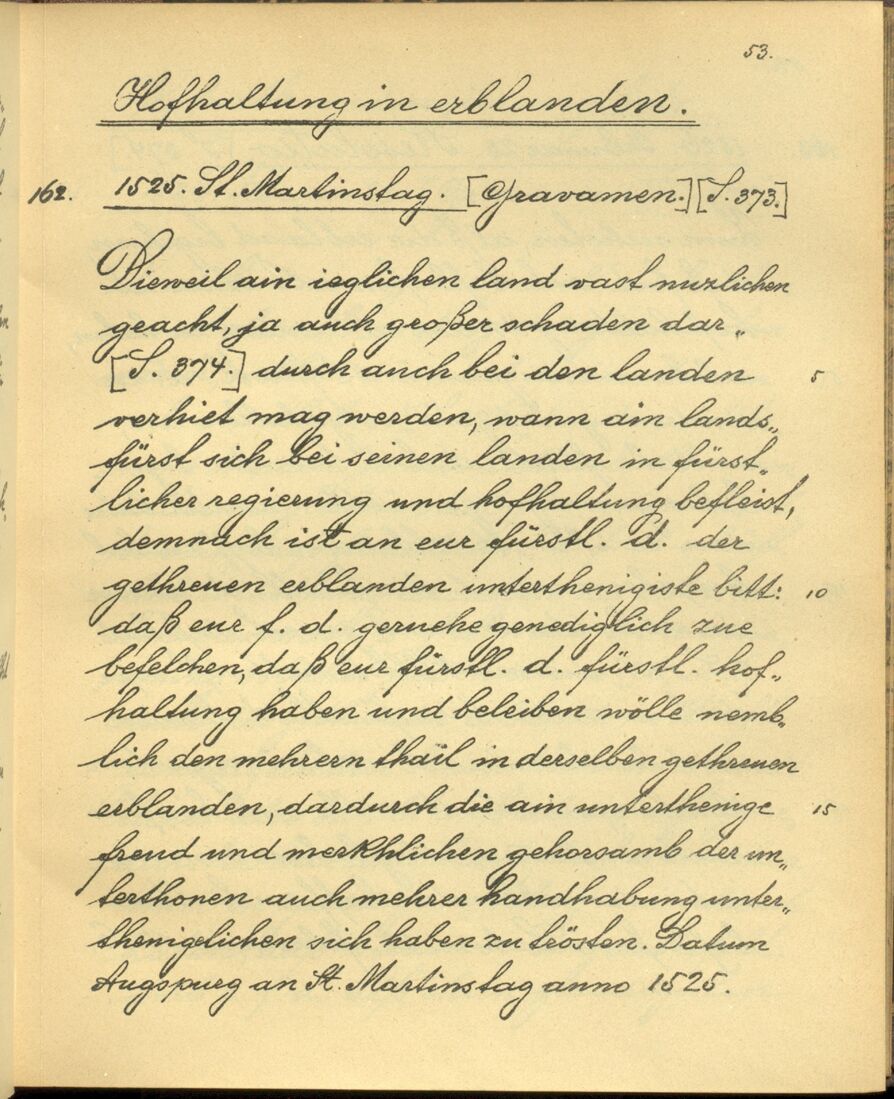 53.
Hofhaltung in erblanden.
162. 1525. St. Martinstag. [Gravamen.] [S. 373.]
Dieweil ain ieglichen land vast nuzlichen
geacht, ja auch großer schaden dar„
[S. 374.] durch auch bei den landen 5
verhiet mag werden, wann ain lands„
fürst sich bei seinen landen in fürst„
licher regierung und hofhaltung befleist,
demnach ist an eur fürstl. d. der
gethreuen erblanden unterthenigiste bitt: 10
daß eur f. d. geruehe genediglich zue
befelchen, daß eur fürstl. d. fürstl. hof„
haltung haben und beleiben wölle nemb„
lich den mehrern thail in derselben gethreuen
erblanden, dardurch die ain unterthenige 15
freud und merkhlichen gehorsamb der un„
terthonen auch mehrer handhabung unter„
thenigelichen sich haben zu trösten. Datum
Augspurg an St. Martinstag anno 1525.